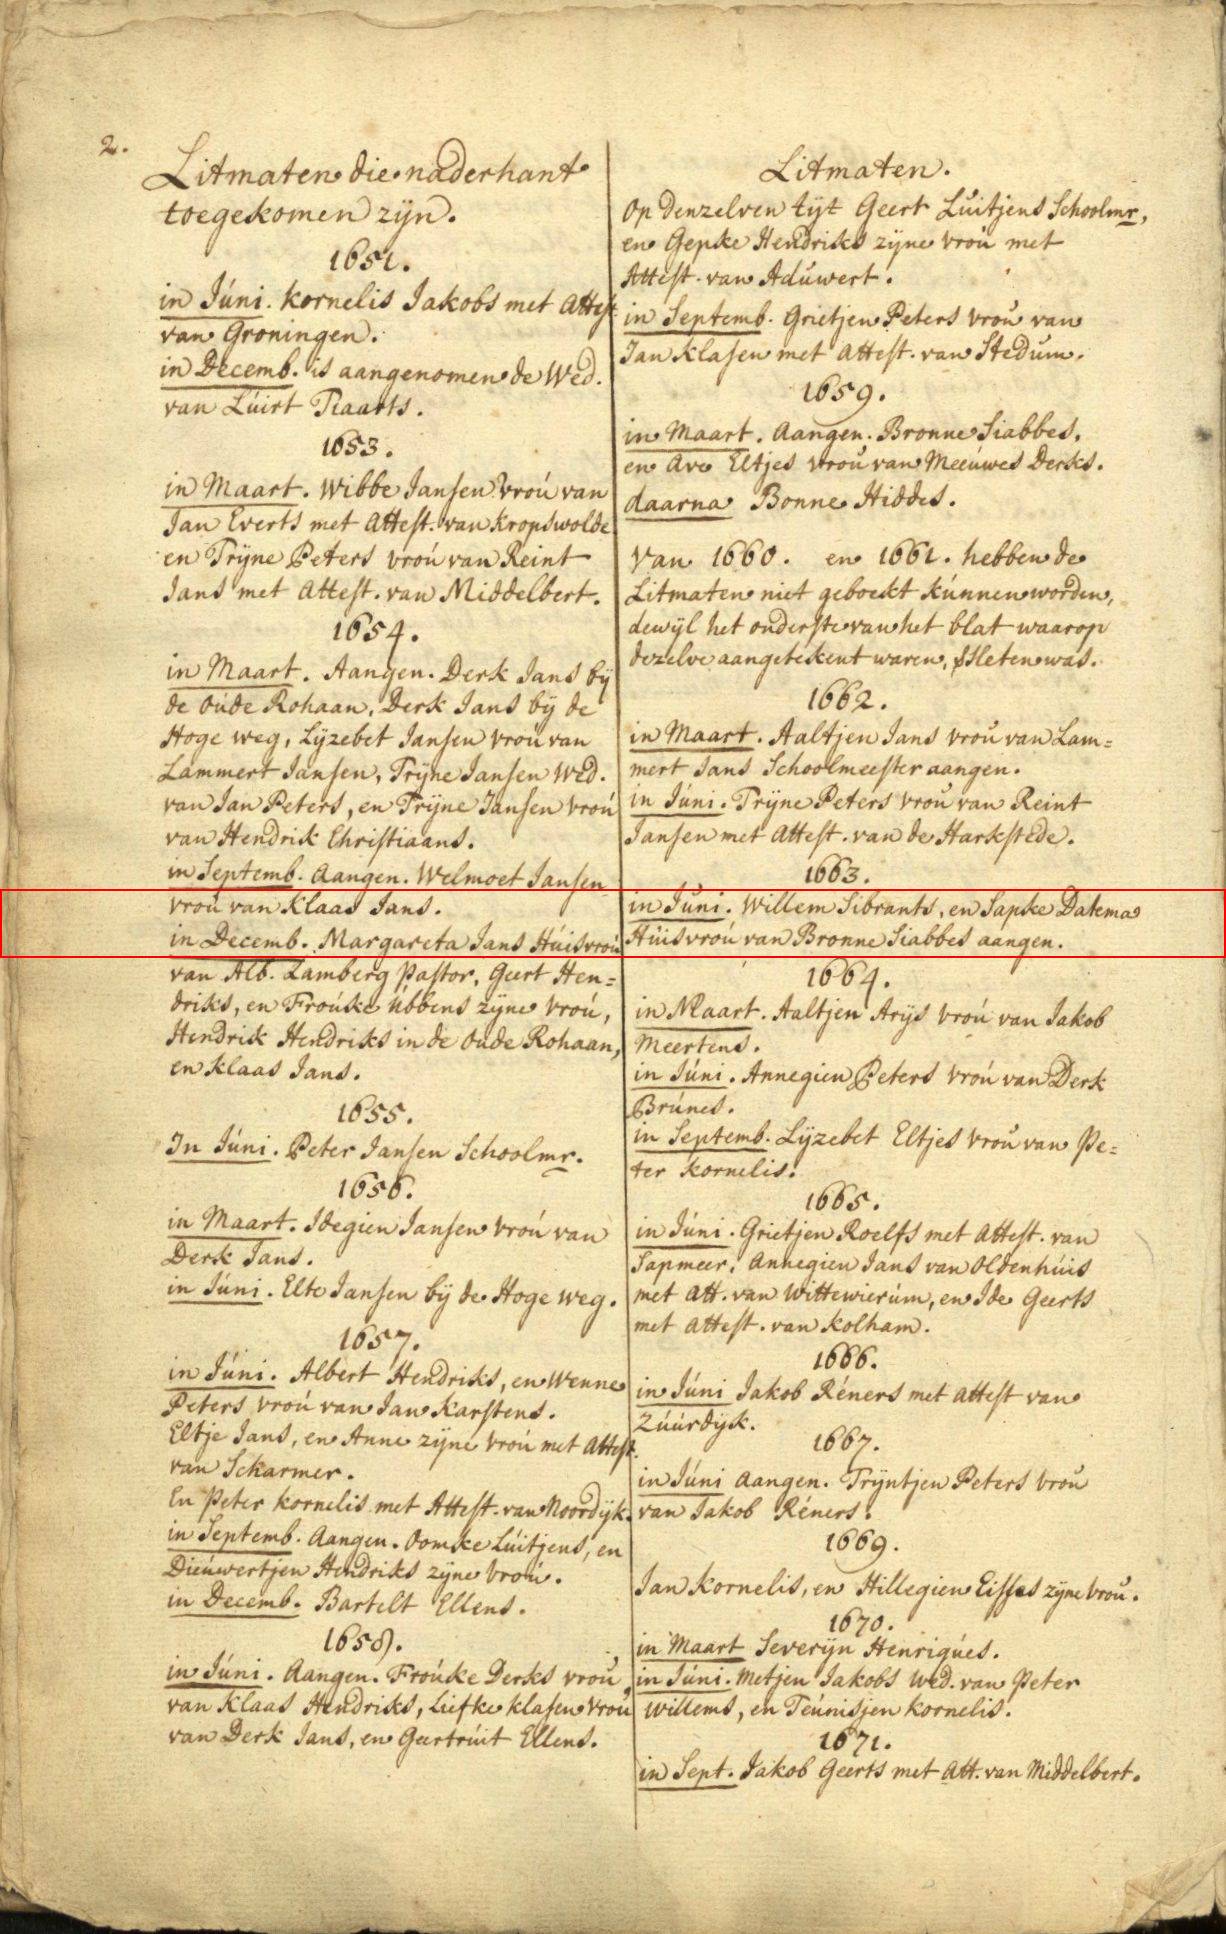 2.
Litmaten die naderhant
toegekomen zijn.
1651.
in Júni. Kornelis Jakobs met Attest
van Groningen.
in Decemb. is aangenomen de Wed.
van Lúirt Tiaarts.
1653.
in Maart. Wibbe Jansen vroú van
Jan Everts met Attest. van Kropswolde
en Trijne Peters vroú van Reint
Jans met Attest. van Middelbert.
1654.
in Maart. Aangen. Derk Jans bij
de oude Rohaan, Derk Jans bij de
Hoge weg, Lijzebet Jansen vroú van
Lammert Jansen, Trijne Jansen Wed.
van Jan Peters, en Trijne Jansen vroú
van Hendrik Christiaans.
in Septemb. Aangen. Welmoet Jansen
vroú van Klaas Jans.
in Decemb. Margareta Jans Húisvroú
van Alb. Lamberg Pastor, Geert Hen=
driks, en Froúke Ubbens zijne vroú,
Hendrik Hendriks in de oude Rohaan,
en Klaas Jans.
1655.
In Júni. Peter Jansen Schoolmr.
1656.
in Maart. Idegien Jansen vroú van
Derk Jans.
in Júni. Elte Jansen bij de Hoge weg.
1657.
in Júni. Albert Hendriks, en Wenne
Peters vroú van Jan Karstens.
Eltje Jans, en Anne zijne vroú met Attest.
van Scharmer.
En Peter Kornelis met Attest. van Noordijk.
in Septemb. Aangen. Oomke Lúitjens, en
Dieúwertjen Hendriks zijne vroú.
in Decemb. Bartelt Ellens.
1658.
in Júni. Aangen. Froúke Derks vroú
van Klaas Hendriks, Liefke Klasen vroú
van Derk Jans, en Geertrúit Ellens.
Litmaten.
Op denzelven tijt Geert Lúitjens Schoolmr,
en Gepke Hendriks zijne vroú met
Attest. van Adúwert.
in Septemb. Grietjen Peters vroú van
Jan Klasen met Attest. van Stedum.
1659.
in Maart. Aangen. Bronne Siabbes,
en Ave Eltjes vroú van Meeúwes Derks.
daarna Bonne Hiddes.
Van 1660. en 1661. hebben de
Litmaten niet geboekt kúnnen worden,
dewijl het onderste van het blat waarop
dezelve aangetekent waren, was.
1662.
in Maart. Aaltjen Jans vroú van Lam=
mert Jans Schoolmeester aangen.
in Júni. Trijne Peters vroú van Reint
Jansen met Attest. van de Harkstede.
1663.
in Júni. Willem Sibrants, en Sapke Datema
Húisvroú van Bronne Siabbes aangen.
1664.
in Maart. Aaltjen Arijs vroú van Jakob
Meertens.
in Júni. Annegien Peters vroú van Derk
Brúnes.
in Septemb. Lijzebet Eltjes vroú van Pe=
ter Kornelis.
1665.
in Júni. Grietjen Roelfs met Attest. van
Sapmeer, Annegien Jans van Oldenhúis
met Att. van Wittewierúm, en Ide Geerts
met Attest. van Kolham.
1666.
in Júni Jakob Réners met Attest van
Zúúrdijk.
1667.
in Júni Aangen. Trijntjen Peters vroú
van Jakob Réners.
1669.
Jan Kornelis, en Hillegien Eisses zijne vroú.
1670.
in Maart Severijn Henriqúes.
in Júni. Metjen Jakobs Wed. van Peter
Willems, en Teúnisjen Kornelis.
1671.
in Sept. Jakob Geerts met Att. van Middelbert.